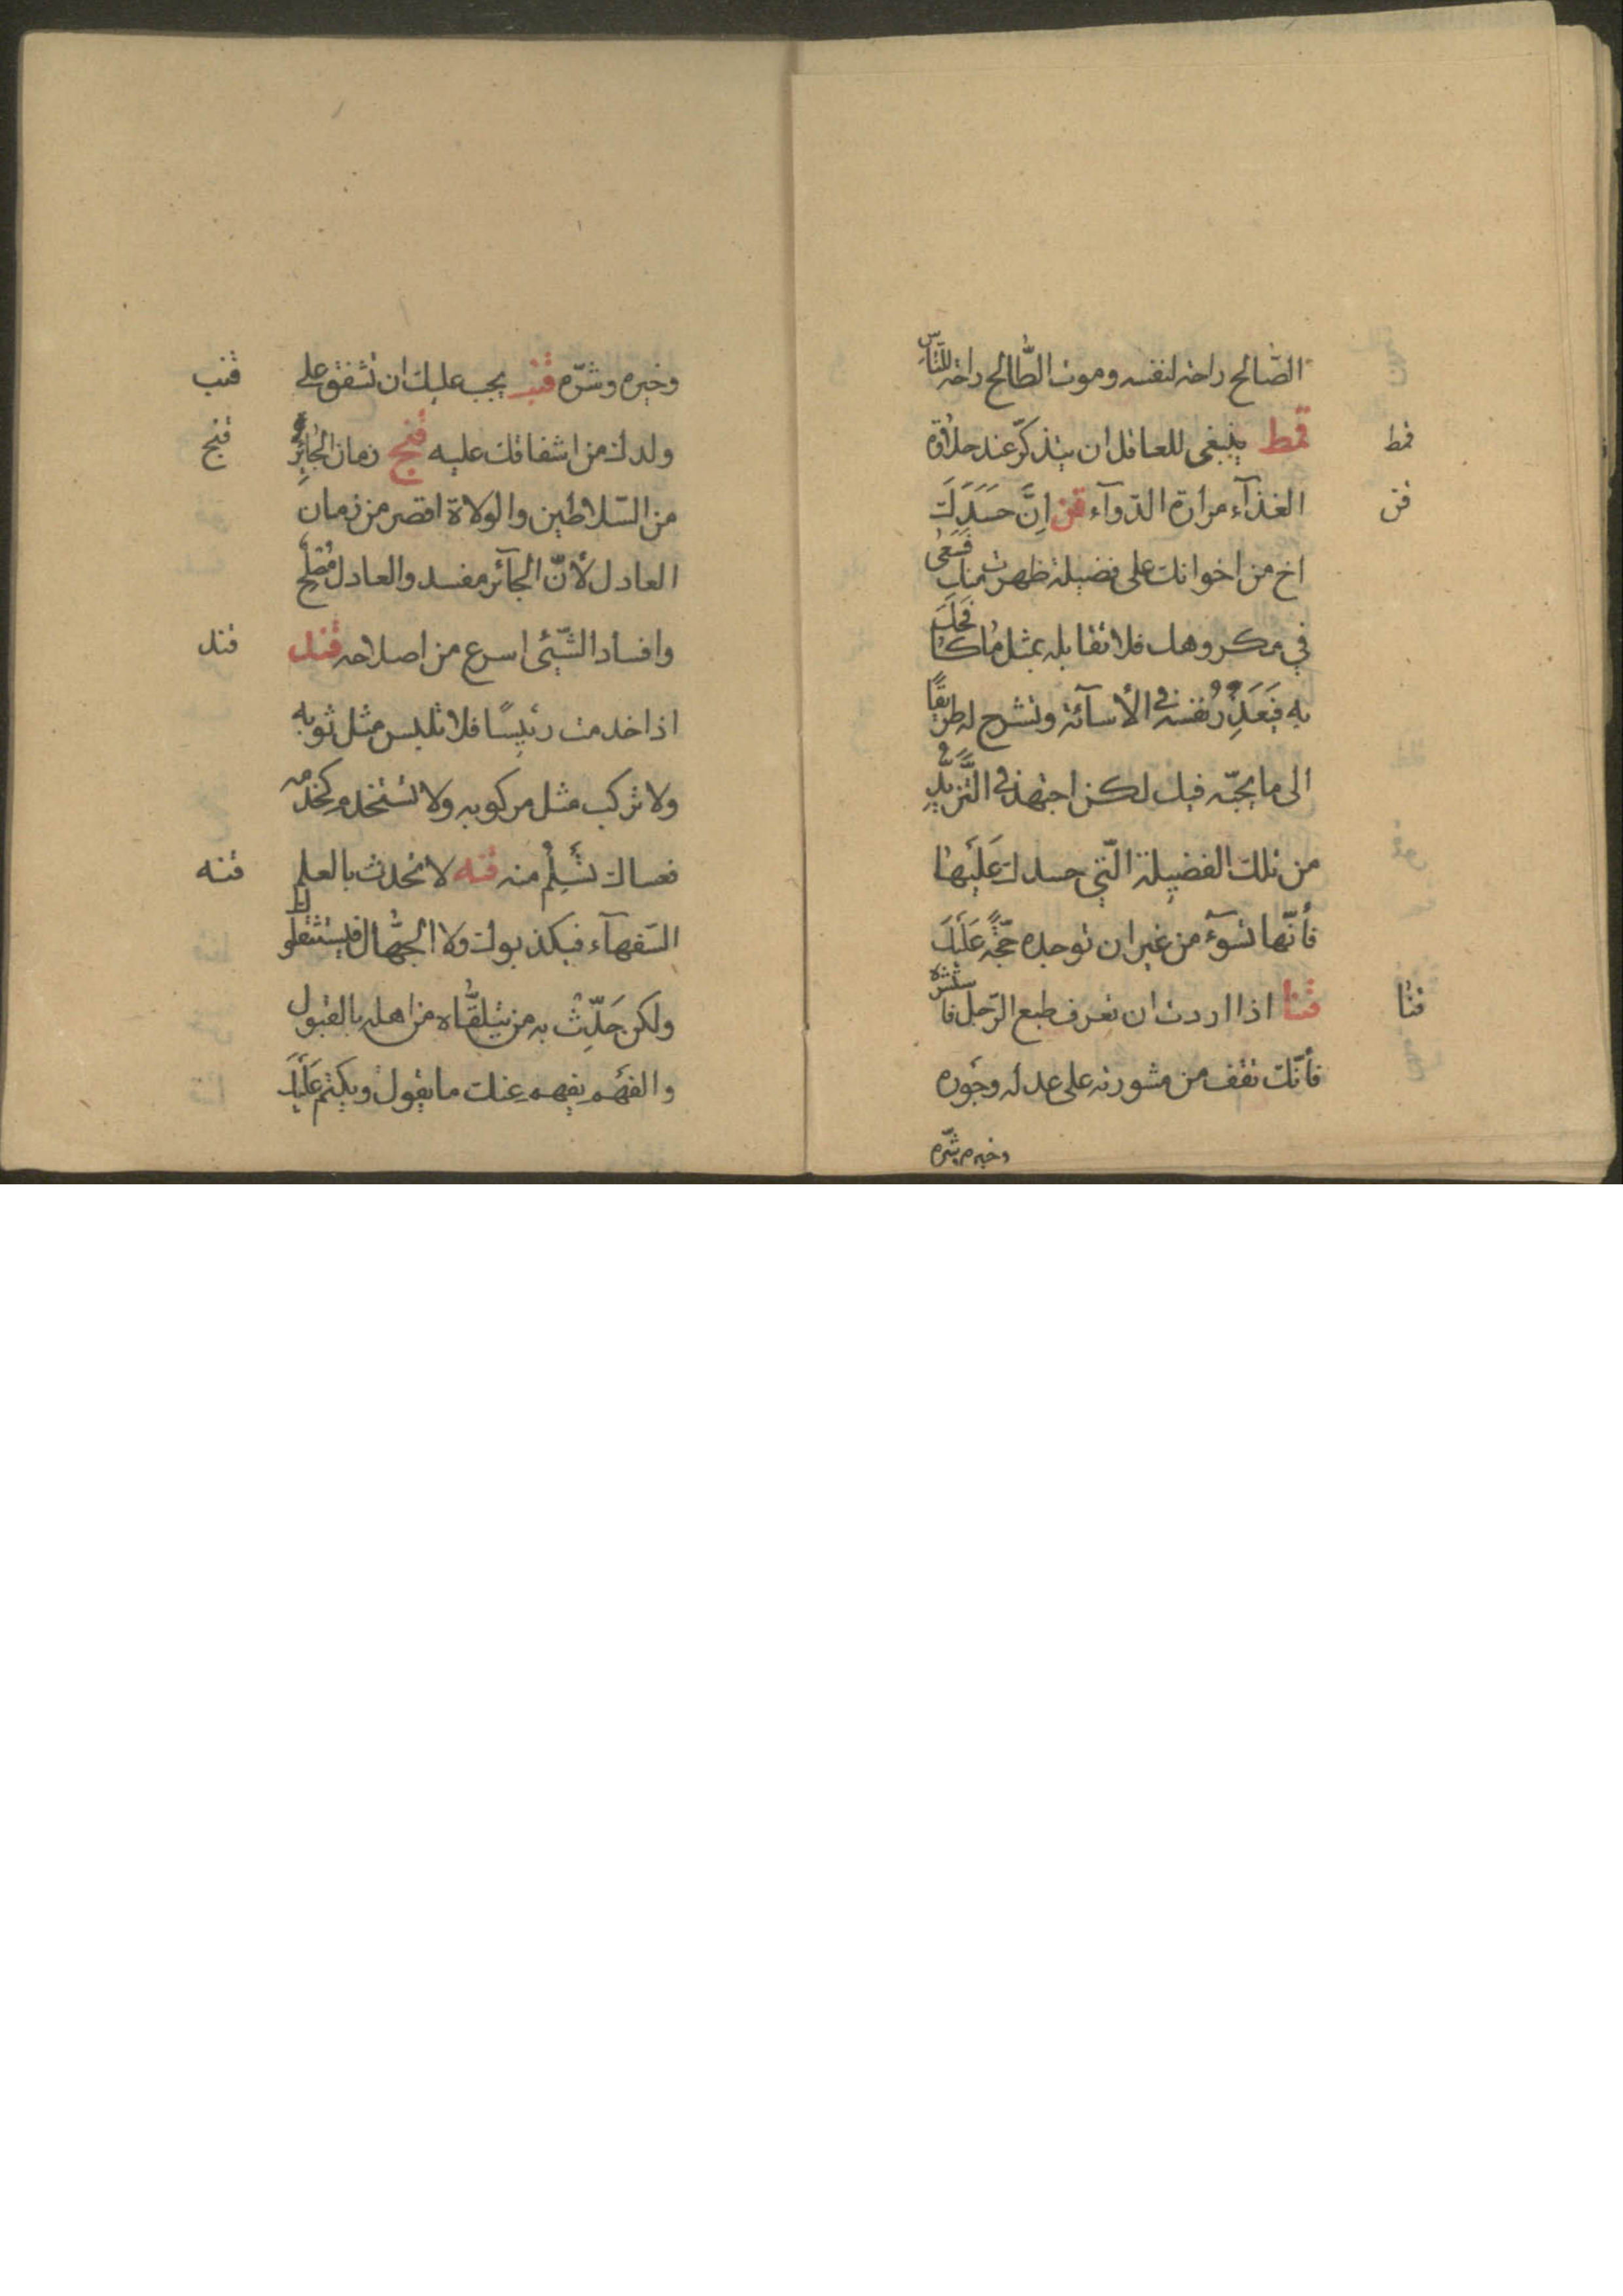 الصّالح راحة لنفسه وموت الطّالح راحة للنّاس
قمط ينبغي للعاقل ان يتذكّر عند حلاوة
قمط
الغذآء مرارة الدّوآء قن اِنَّ حَسَدَكَ
قن
اخ من اخوانك على فضيلة ظهرت منك فَسَعىٰ
في مكروهك فلا تقابله بمثل ما كافحك
به فَيَعذِرُ نفسه في الأسآئة وتشرح له طريقًا
الى ما يحبّه فيك لكن اجتهد في التَّزَيُّدِ
من تلك الفضيلة الّتي حسدك عَلَيْهٰا
فأنّها تسوٓء من غير ان توجده حجّةً عَلَيْكَ
قنا اذا اردت ان تعرف طبع الرّجل فاستشره
قنا
فأنّك تقف من مشورته على عدله وجَوره
وخيره وشرّه
وخيره وشرّه قنب يجب عليك ان تشفق على
قنب
ولدك من اشفاقك عليه قنج زمان الجٰائِرِ
قنج
من السّلاطين والولاة اقصر من زمان
العادل لأنّ الجآئر مفسد والعادل مُصْلِح
وافساد الشّيئى اسرع من اصلاحه قند
قند
اذا خدمت رئيسًا فلا تلبس مثل ثوبه
ولا تركب مثل مركوبه ولا تستخدم كخدمه
فعساك تَسْلِمُ منه قنه لا تحدث بالعلم
قنه
السّفهآء فيكذبوك ولا الجهّال فيستثقلوك
ولكن حَدِّث به من يتلقّاه من اهله بالقبول
والفهم يفهم عنك ما يقول ويكتم عَلَيْكَ